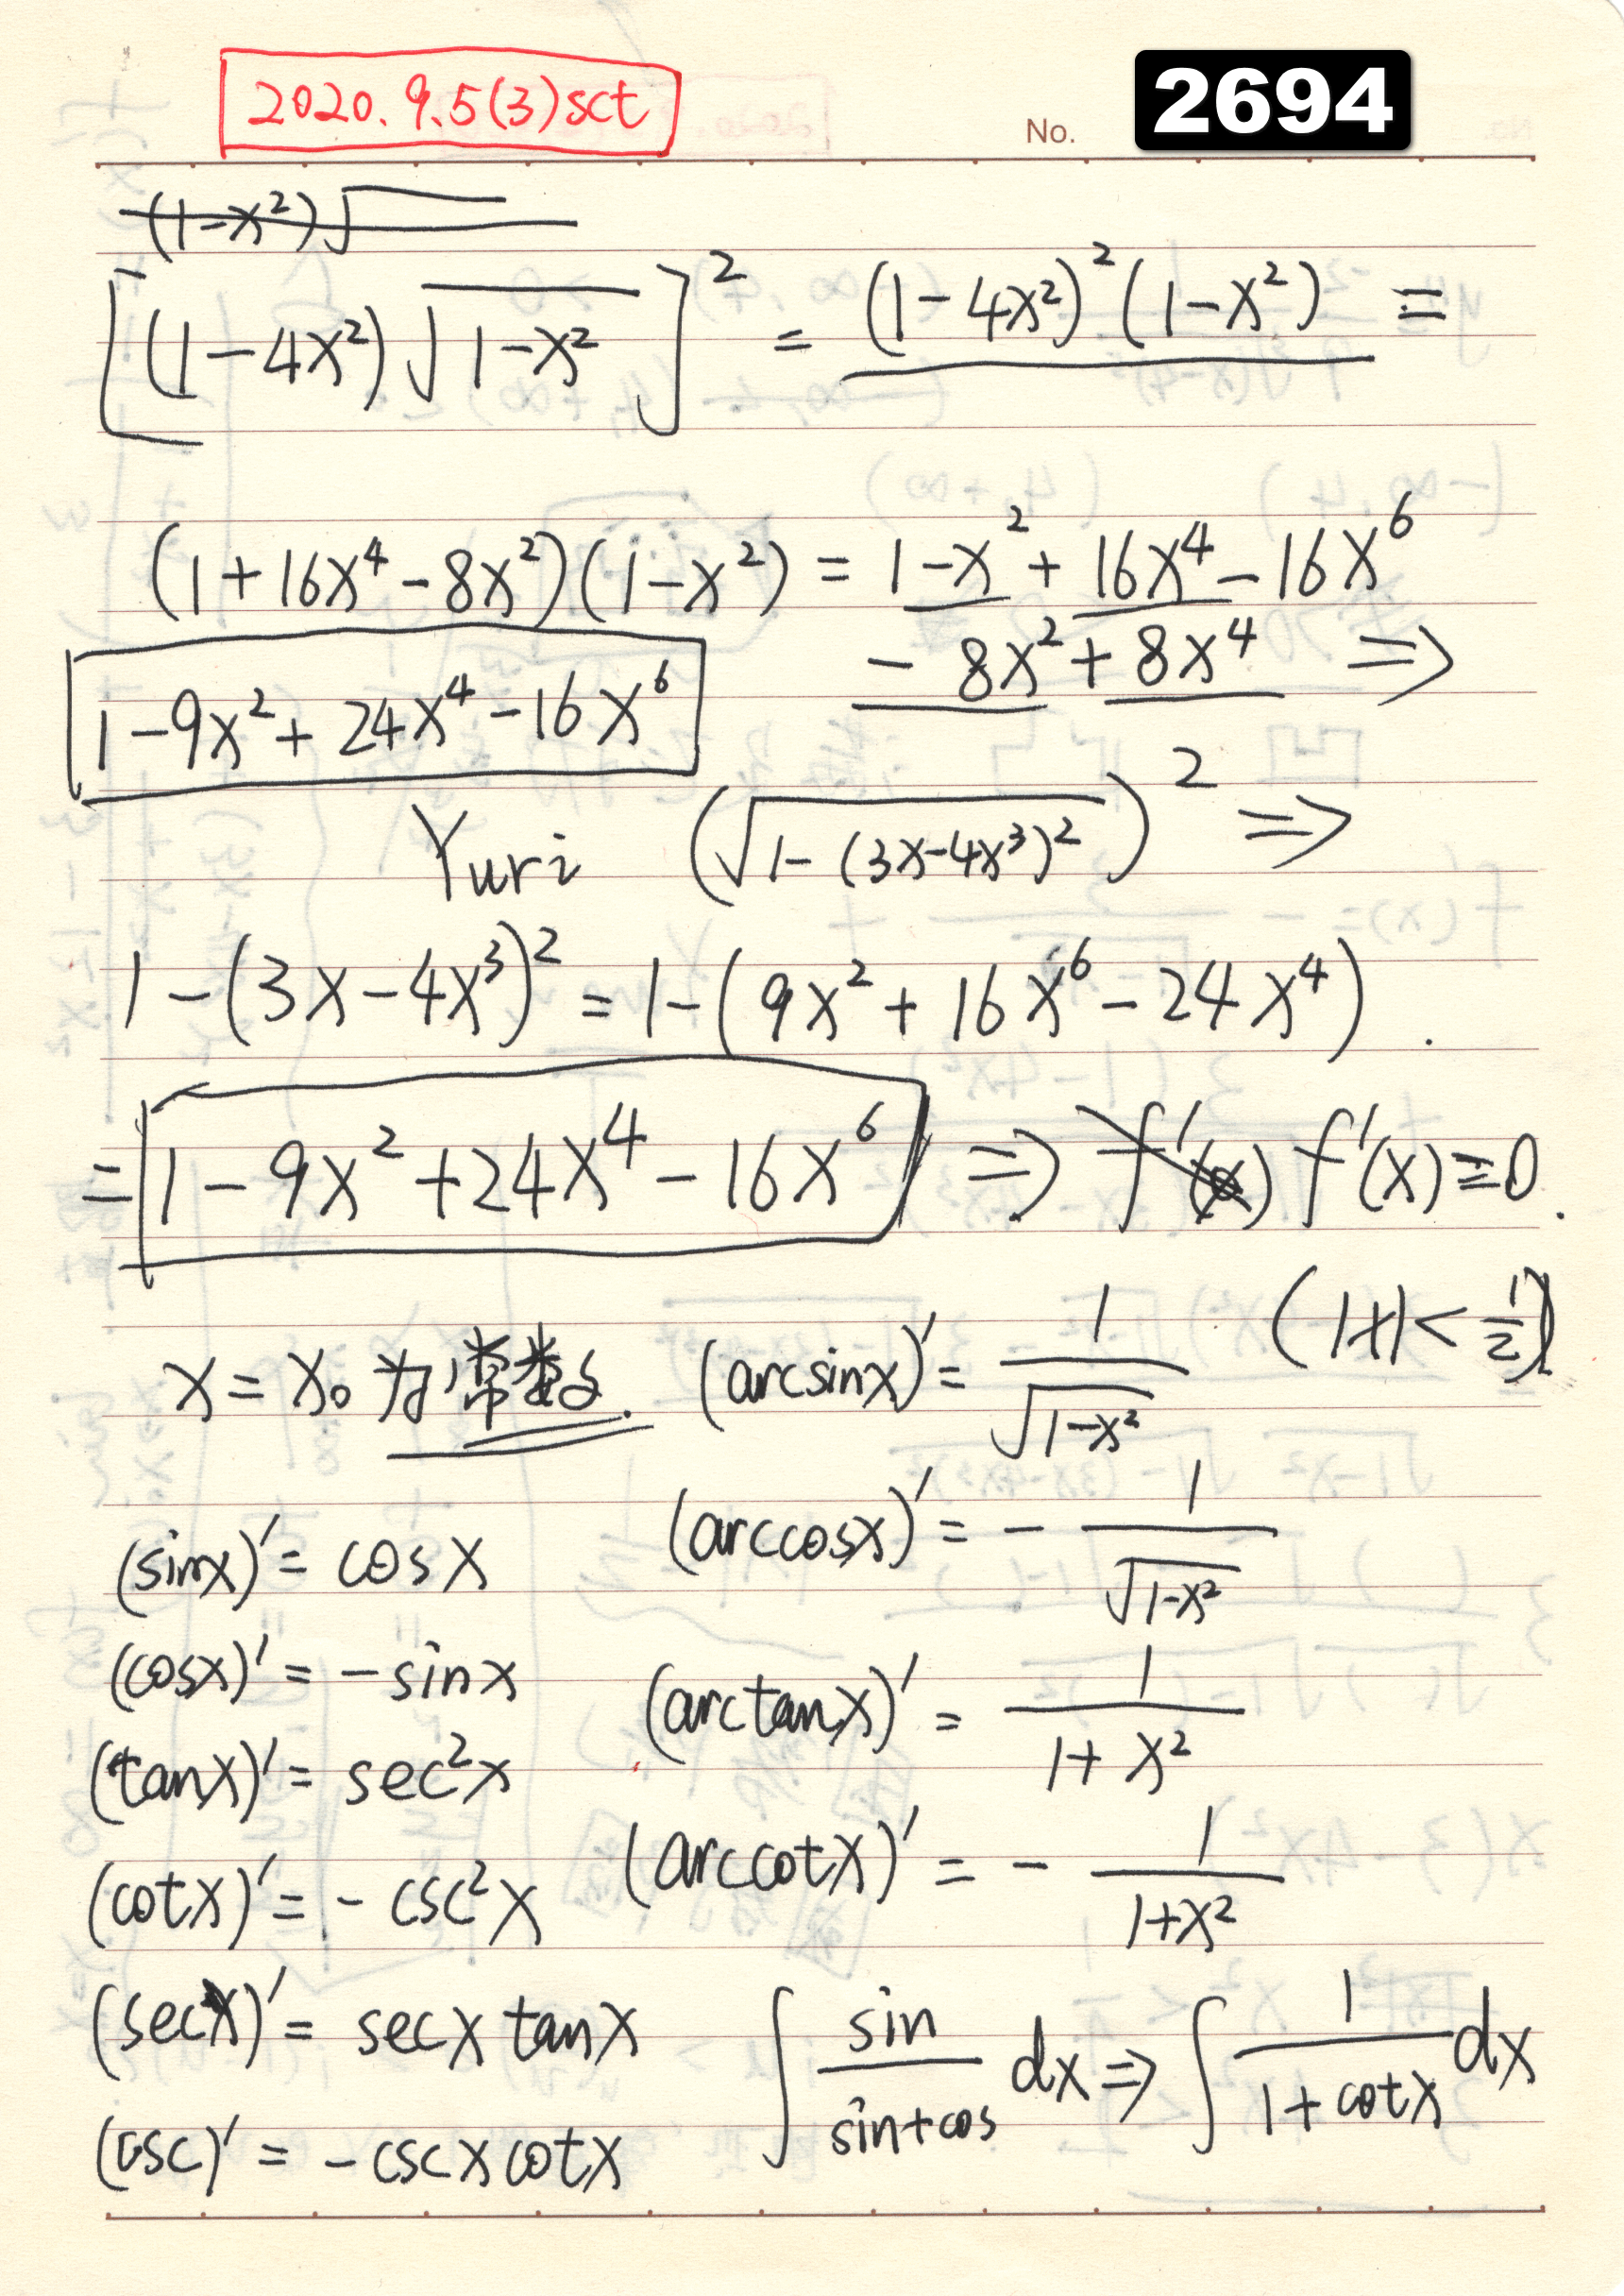 2020.9.5(3)sct
No. 2694
(1-x²)√
[(1-4x²)√1-x²]² = (1-4x²)²(1-x²) =
(1+16x⁴-8x²)(1-x²) = 1-x²+16x⁴-16x⁶
-8x²+8x⁴ ⇒
1-9x²+24x⁴-16x⁶
Yuri (√1-(3x-4x³)²)² ⇒
1-(3x-4x³)² = 1-(9x²+16x⁶-24x⁴).
= 1-9x²+24x⁴-16x⁶ ⇒ f'(x) f'(x)≡0.
(|x|<1/2)
x=x₀为常数. (arcsinx)' = 1/√1-x²
(arccosx)' = - 1/√1-x²
(sinx)' = cosx
(cosx)' = -sinx
(arctanx)' = 1/1+x²
(tanx)' = sec²x
(arccotx)' = - 1/1+x²
(cotx)' = -csc²x
(secx)' = secx tanx
∫ sin/sin+cos dx ⇒ ∫ 1/1+cotx dx
(csc)' = -cscxcotx